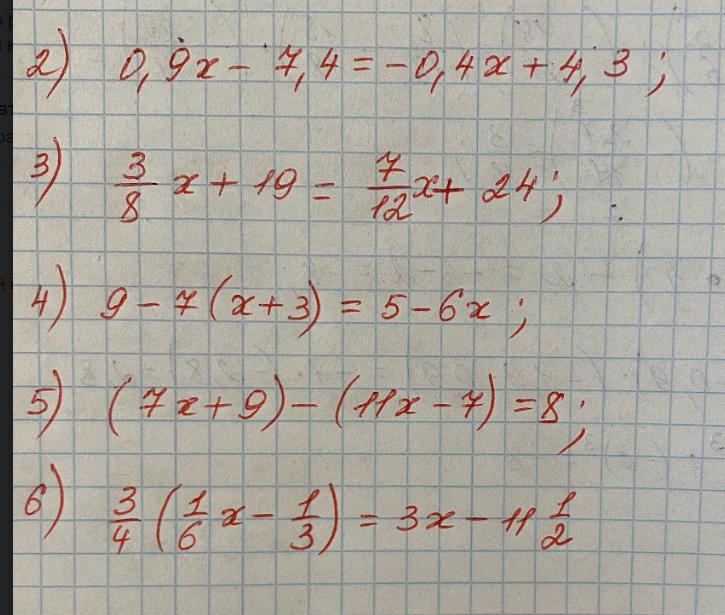 2) 0,9x - 7,4 = -0,4x + 4,3 ;
3) 3/8 x + 19 = 7/12 x + 24 ;
4) 9 - 7(x+3) = 5 - 6x ;
5) (7x+9) - (11x-7) = 8 ;
6) 3/4 (1/6 x - 1/3) = 3x - 11 1/2